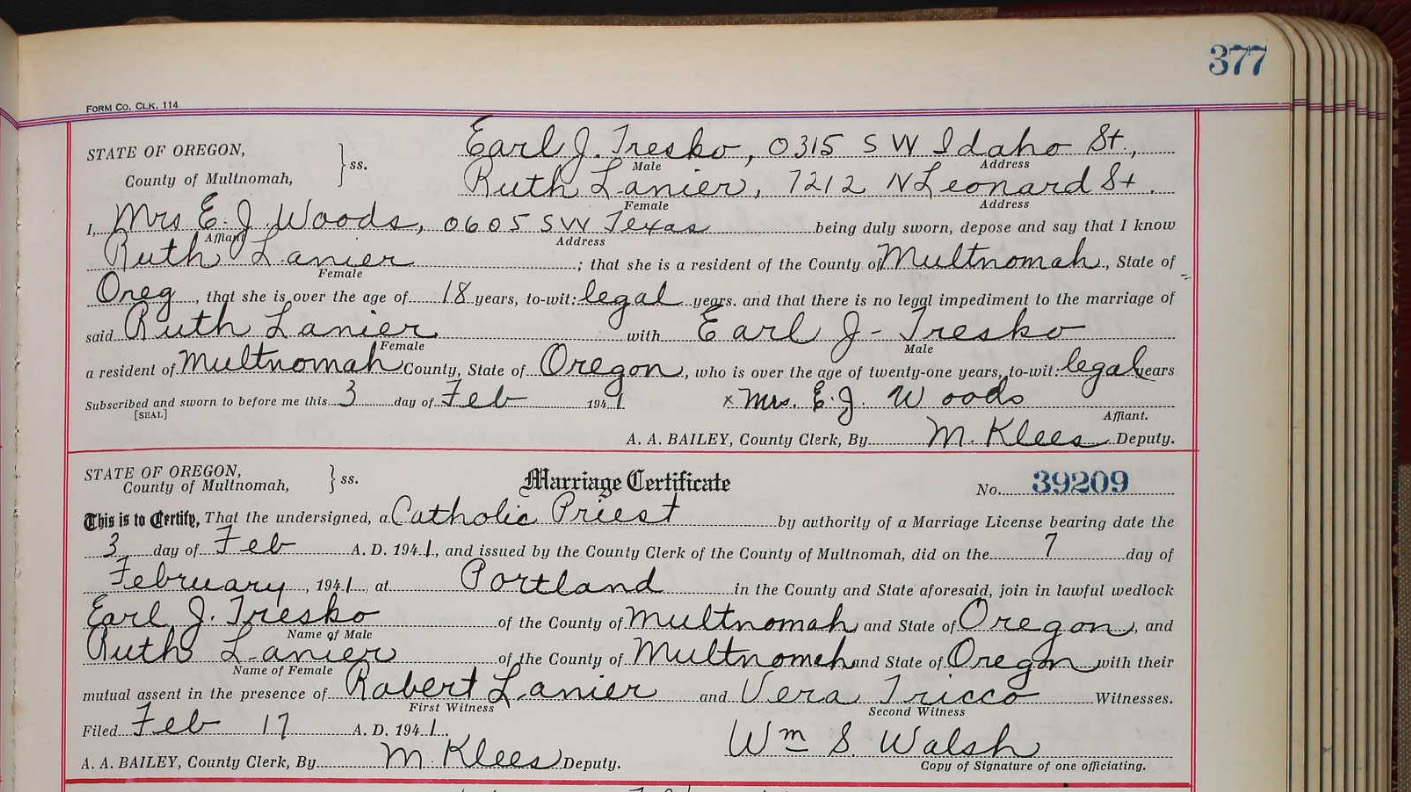 377
FORM CO. CLK. 114
STATE OF OREGON,
County of Multnomah, } ss.
Earl J. Tresko, 0315 S W Idaho St.,
Male Address
Ruth Lanier, 7212 N Leonard St.
Female Address
I, Mrs E. J. Woods, 0605 SW Texas being duly sworn, depose and say that I know
Affiant Address
Ruth Lanier ; that she is a resident of the County of Multnomah, State of
Female
Oreg, that she is over the age of 18 years, to-wit: legal years. and that there is no legal impediment to the marriage of
said Ruth Lanier with Earl J- Tresko
Female Male
a resident of Multnomah County, State of Oregon, who is over the age of twenty-one years, to-wit: legal years
Subscribed and sworn to before me this 3 day of Feb 1941 x Mrs. E.J. Woods
[SEAL] Affiant.
A. A. BAILEY, County Clerk, By M. Klees Deputy.
STATE OF OREGON,
County of Multnomah, } ss.
Marriage Certificate
No. 39209
This is to Certify, That the undersigned, a Catholic Priest by authority of a Marriage License bearing date the
3 day of Feb A. D. 1941, and issued by the County Clerk of the County of Multnomah, did on the 7 day of
February, 1941 at Portland in the County and State aforesaid, join in lawful wedlock
Earl J. Tresko of the County of Multnomah and State of Oregon, and
Name of Male
Ruth Lanier of the County of Multnomah and State of Oregon with their
Name of Female
mutual assent in the presence of Robert Lanier and Vera Tricco Witnesses.
First Witness Second Witness
Filed Feb 17 A. D. 1941.
Wm S. Walsh
A. A. BAILEY, County Clerk, By M. Klees Deputy.
Copy of Signature of one officiating.